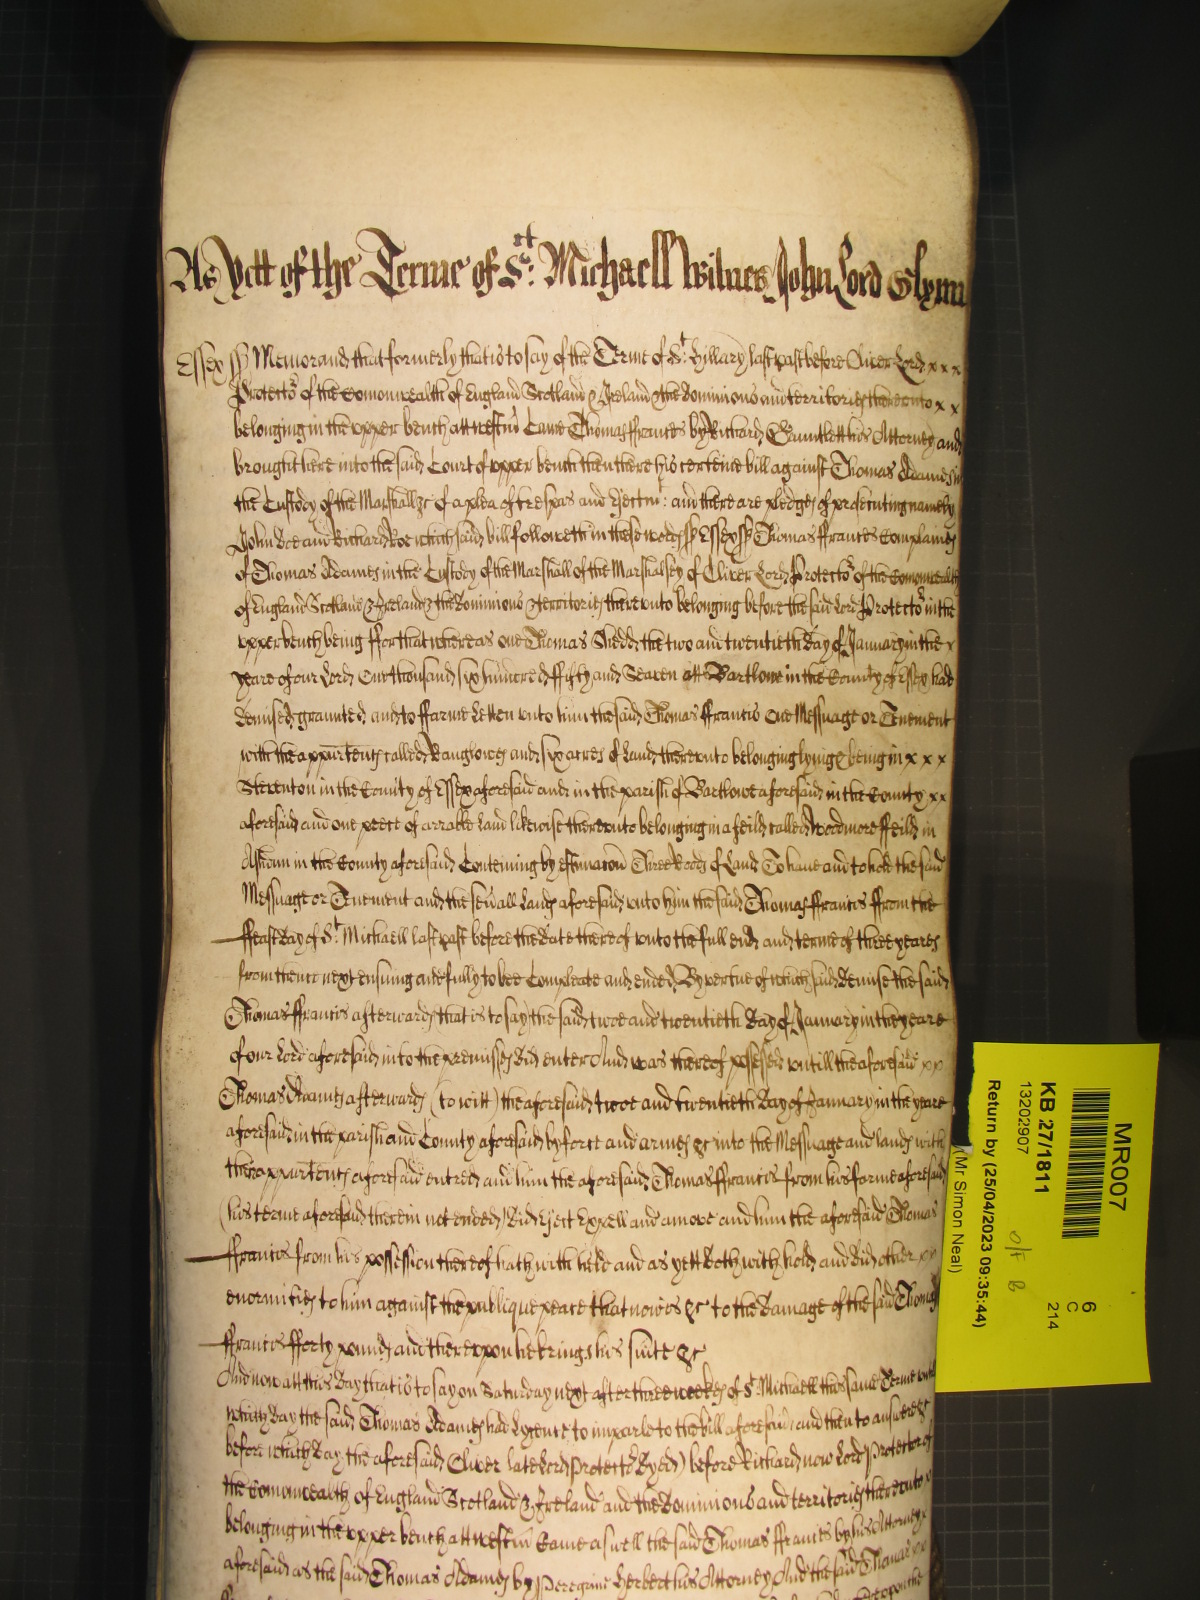 As Yett of the Terme of St. Michaell Witnes John Lord Glynn
Essex ss Memorand that formerly that is to say of the Terme of St. Hillary last past before Oliver Lord x x x
Protector of the Comonwealth of England Scotland & Ireland & the Dominions and territories thereunto x x
belonging in the upper bench att Westm Came Thomas ffrancis by Richard Gauntlett his Attorney and
brought here into the said Court of upper bench then there his certeine bill against Thomas Adames in
the Custody of the Marshall &c of a plea of trespas and Ejectm: and there are pledges of prosecuting namely
John Doe and Richard Roe which said bill followeth in these words ss Essex ss Thomas ffrancis Complaines
of Thomas Adames in the Custody of the Marshall of the Marshalsey of Oliver Lord Protector of the Comonwealth
of England Scotland & Ireland & the Dominions & territories thereunto belonging before the said Lord Protector in the
upper bench being ffor that whereas one Thomas Shedd the two and twentieth Day of January in the x
yeare of our Lord One thousand six hundred ffifty and Seaven att Bartlowe in the County of Essex had
demised graunted and to ffarme Letten unto him the said Thomas ffrancis One Messuage or Tenement
with the appurtents called Langlowes and six acres of Land thereunto belonging lying & being in x x x
Steventon in the County of Essex aforesaid and in the parish of Bartlowe aforesaid in the County x x
aforesaid and one peece of arrable Land likewise thereunto belonging in a feild called Woodmore ffeild in
Ashdon in the County aforesaid Conteining by estimacon Three Roods of Land To have and to hold the said
Messuage or Tenement and the sevall Lands aforesaid unto him the said Thomas ffrancis ffrom the
ffeast Day of St. Michaell last past before the Date thereof unto the full end and terme of three yeares
from thence next ensuing and fully to bee Compleate and ended By vertue of which said Demise the said
Thomas ffrancis afterwards that is to say the said twoe and twentieth Day of January in the yeare
of our Lord aforesaid into the premisses did enter And was thereof possessed untill the aforesaid x x
Thomas Adames afterwards (to witt) the aforesaid twoe and twentieth Day of January in the yeare
aforesaid in the parish and County aforesaid by force and armes &c into the Messuage and lands with
the appurtents aforesaid entred and him the aforesaid Thomas ffrancis from his farme aforesaid
(his terme aforesaid therein not ended) did Eject Expell and amove and him the aforesaid Thomas
ffrancis from his possession thereof hath with held and as yett Doth with hold and did other x x
enormities to him against the publique peace that now is &c to the Damage of the said Thomas
ffrancis fforty pounds and thereupon he brings his suite &c
And now att this Day that is to say on Saturday next after three weekes of St Michaell this same Terme untill
which Day the said Thomas Adames had Lycence to imparle to the bill aforesaid and then to answere &c
before which Day the aforesaid Oliver late Lord Protector dyed) before Richard now Lord Protector of
the Comonwealth of England Scotland & Ireland and the Dominions and territories thereunto x
belonging in the upper bench att Westm Came aswell the said Thomas ffrancis by his Attorney x
aforesaid as the said Thomas Adames by Peregrine Herbert his Attorney And the said Thomas x x
MR007
KB 27/1811
13202907
Return by (25/04/2023 09:35:44)
(Mr Simon Neal)
6
C
214